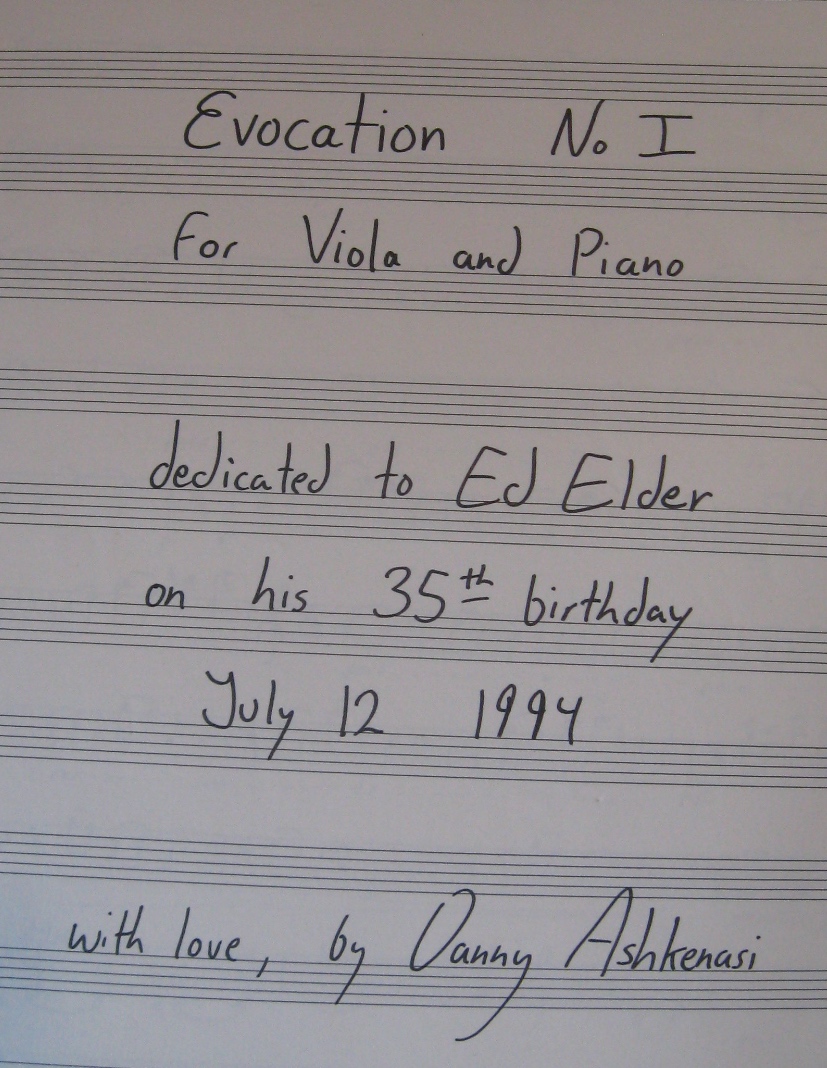 Evocation No I
For Viola and Piano
dedicated to Ed Elder
on his 35th birthday
July 12 1994
with love, by Danny Ashkenasi